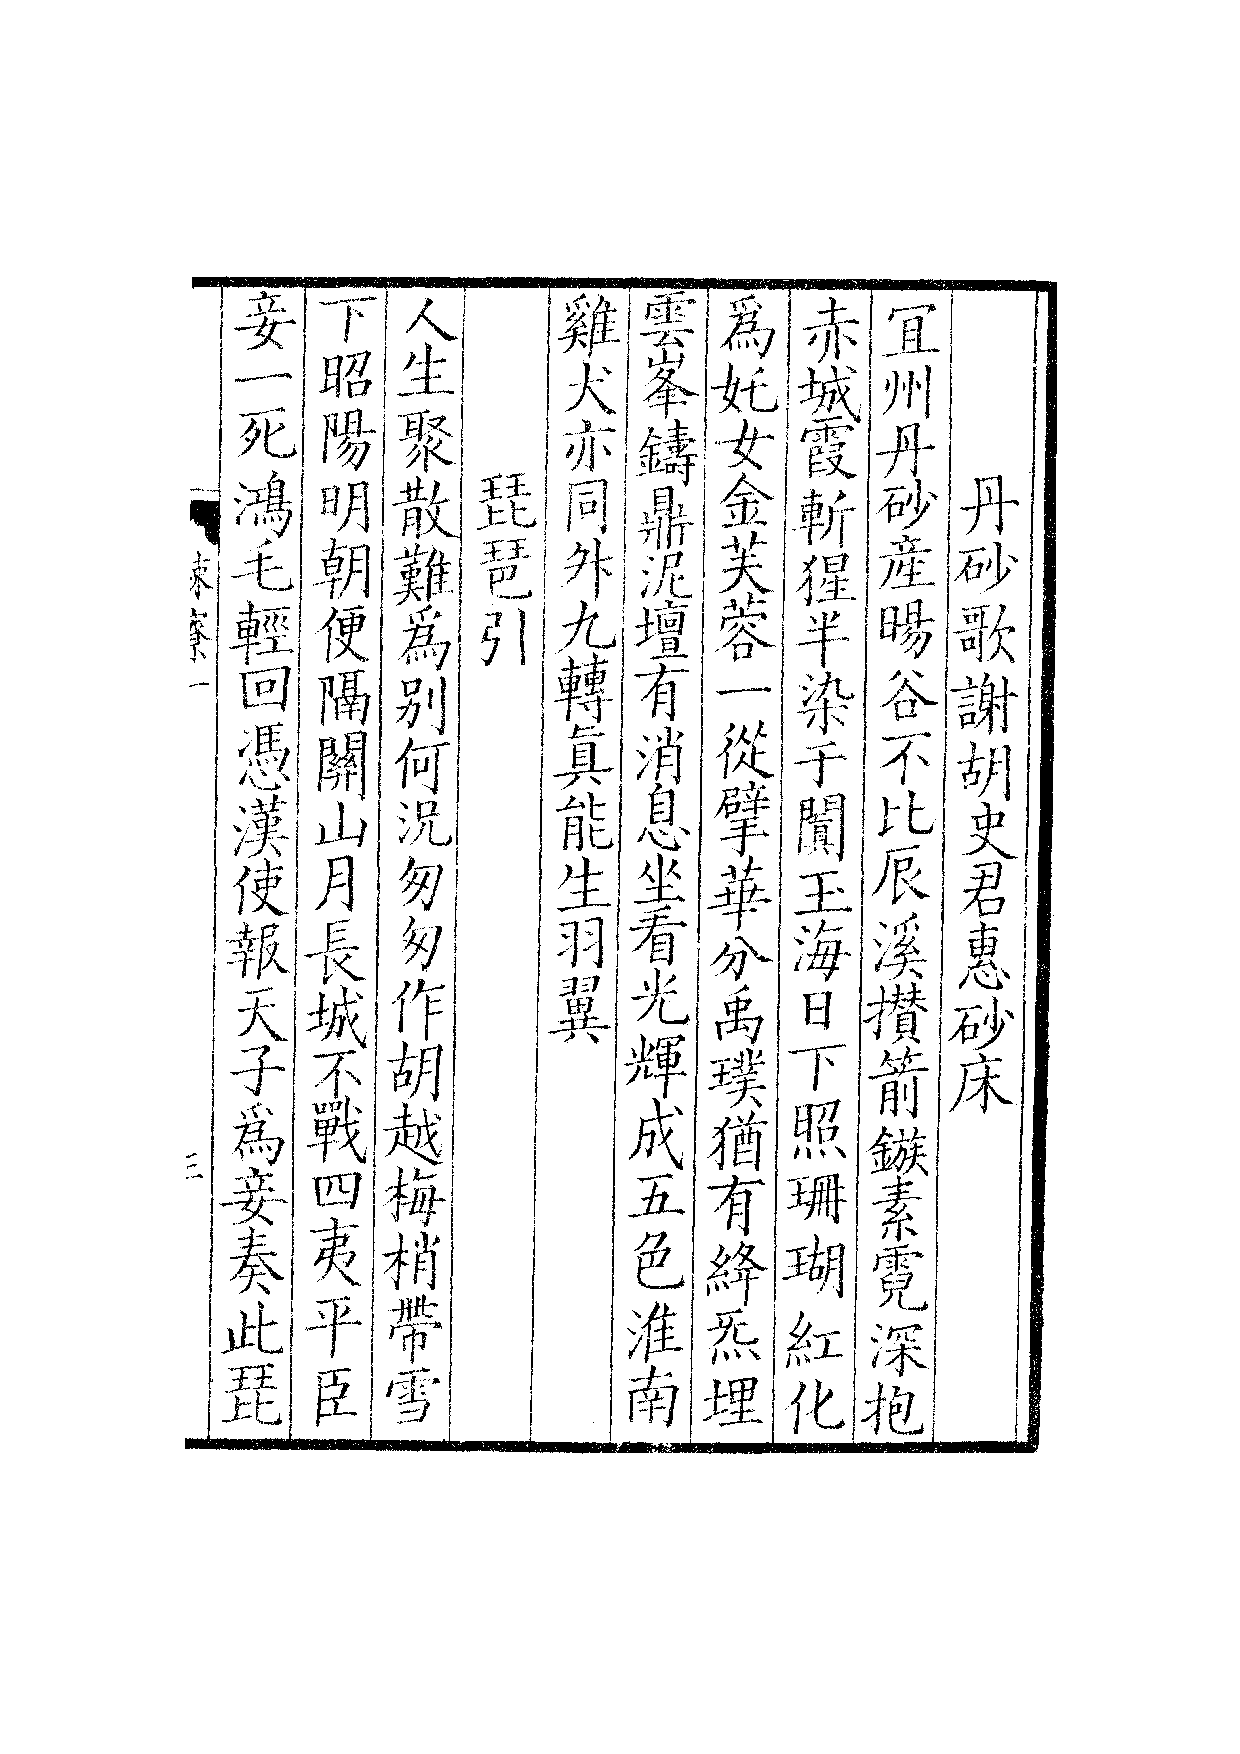 丹砂歌謝胡史君惠砂床
宜州丹砂產暘谷不比辰溪攢箭鏃素霓深抱
赤城霞斬猩半染于闐玉海日下照珊瑚紅化
爲奼女金芙蓉一從擘華分禹璞猶有絳炁埋
雲峯鑄鼎泥壇有消息坐看光輝成五色淮南
雞犬亦同升九轉眞能生羽翼
琵琶引
人生聚散難爲别何況匆匆作胡越梅梢帶雪
下昭陽明朝便隔關山月長城不戰四夷平臣
妾一死鴻毛輕回憑漢使報天子爲妾奏此琵
三